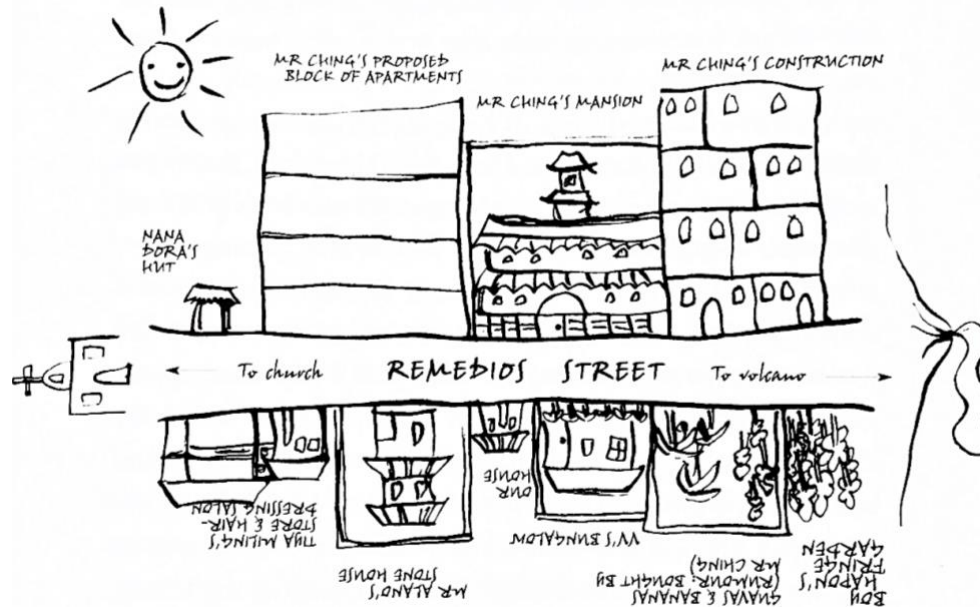 MR CHING'S PROPOSED
BLOCK OF APARTMENTS
MR CHING'S MANSION
MR CHING'S CONSTRUCTION
NANA
DORA'S
HUT
To church
REMEDIOS STREET
To volcano
TIYA MILING'S
STORE & HAIR-
DRESSING SALON
MR ALANO'S
STONE HOUSE
OUR
HOUSE
VV'S BUNGALOW
GUAVAS & BANANAS
(RUMOUR: BOUGHT BY
MR CHING)
BOY
HAPON'S
FRINGE
GARDEN